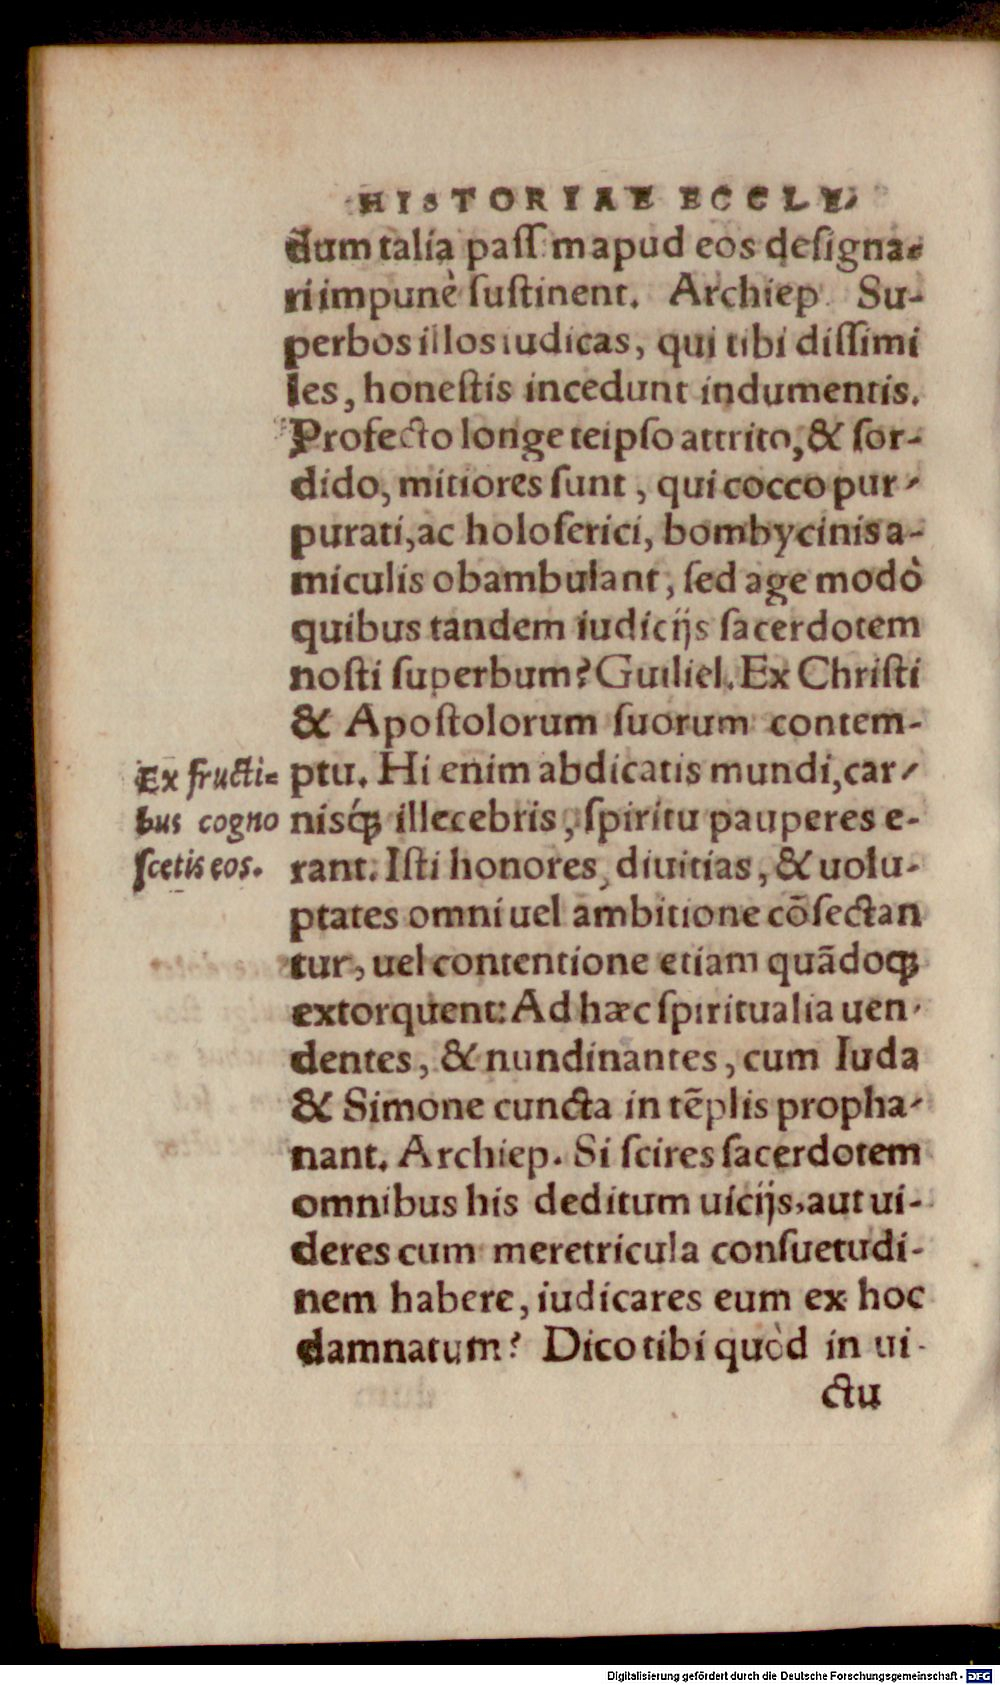 HISTORIAE ECCLE-
dum talia passim apud eos designa-
ri impunè sustinent. Archiep. Su-
perbos illos iudicas, qui tibi dissimi
les, honestis incedunt indumentis.
Profecto longe teipso attrito, & sor-
dido, mitiores sunt, qui cocco pur-
purati, ac holoserici, bombycinis a-
miculis obambulant, sed age modò
quibus tandem iudicijs sacerdotem
nosti superbum? Guiliel. Ex Christi
& Apostolorum suorum contem-
ptu. Hi enim abdicatis mundi, car-
nisq́ꝫ illecebris, spiritu pauperes e-
rant. Isti honores, diuitias, & uolu-
ptates omni uel ambitione cōsectan
tur, uel contentione etiam quãdoqꝫ
extorquent: Ad hæc spiritualia uen-
dentes, & nundinantes, cum Iuda
& Simone cuncta in tẽplis propha-
nant. Archiep. Si scires sacerdotem
omnibus his deditum uicijs, aut ui-
deres cum meretricula consuetudi-
nem habere, iudicares eum ex hoc
damnatum? Dico tibi quòd in ui-
ctu
Ex fructi-
bus cogno
scetis eos.
Digitalisierung gefördert durch die Deutsche Forschungsgemeinschaft - DFG